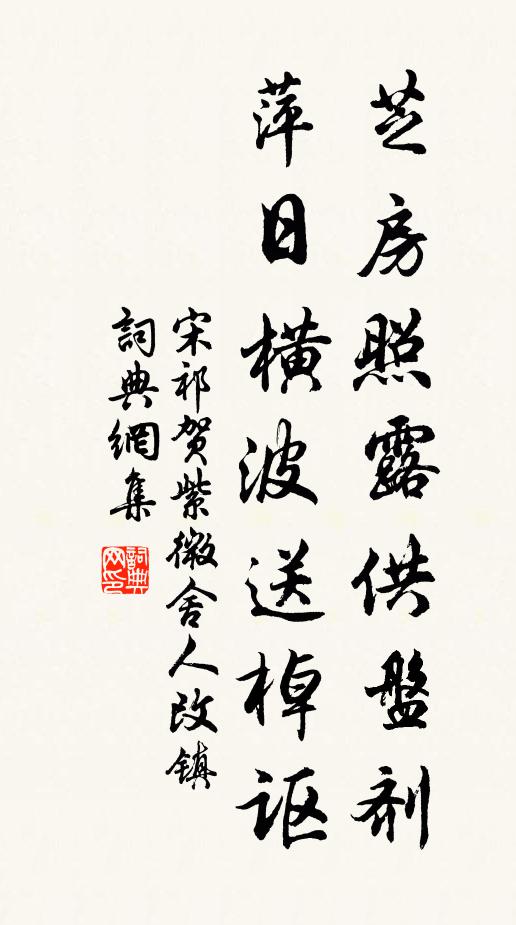 芝房照露供盤剂
萍日横波送棹讴
宋祁贺紫微舍人改镇
詞典網集
詞典网印